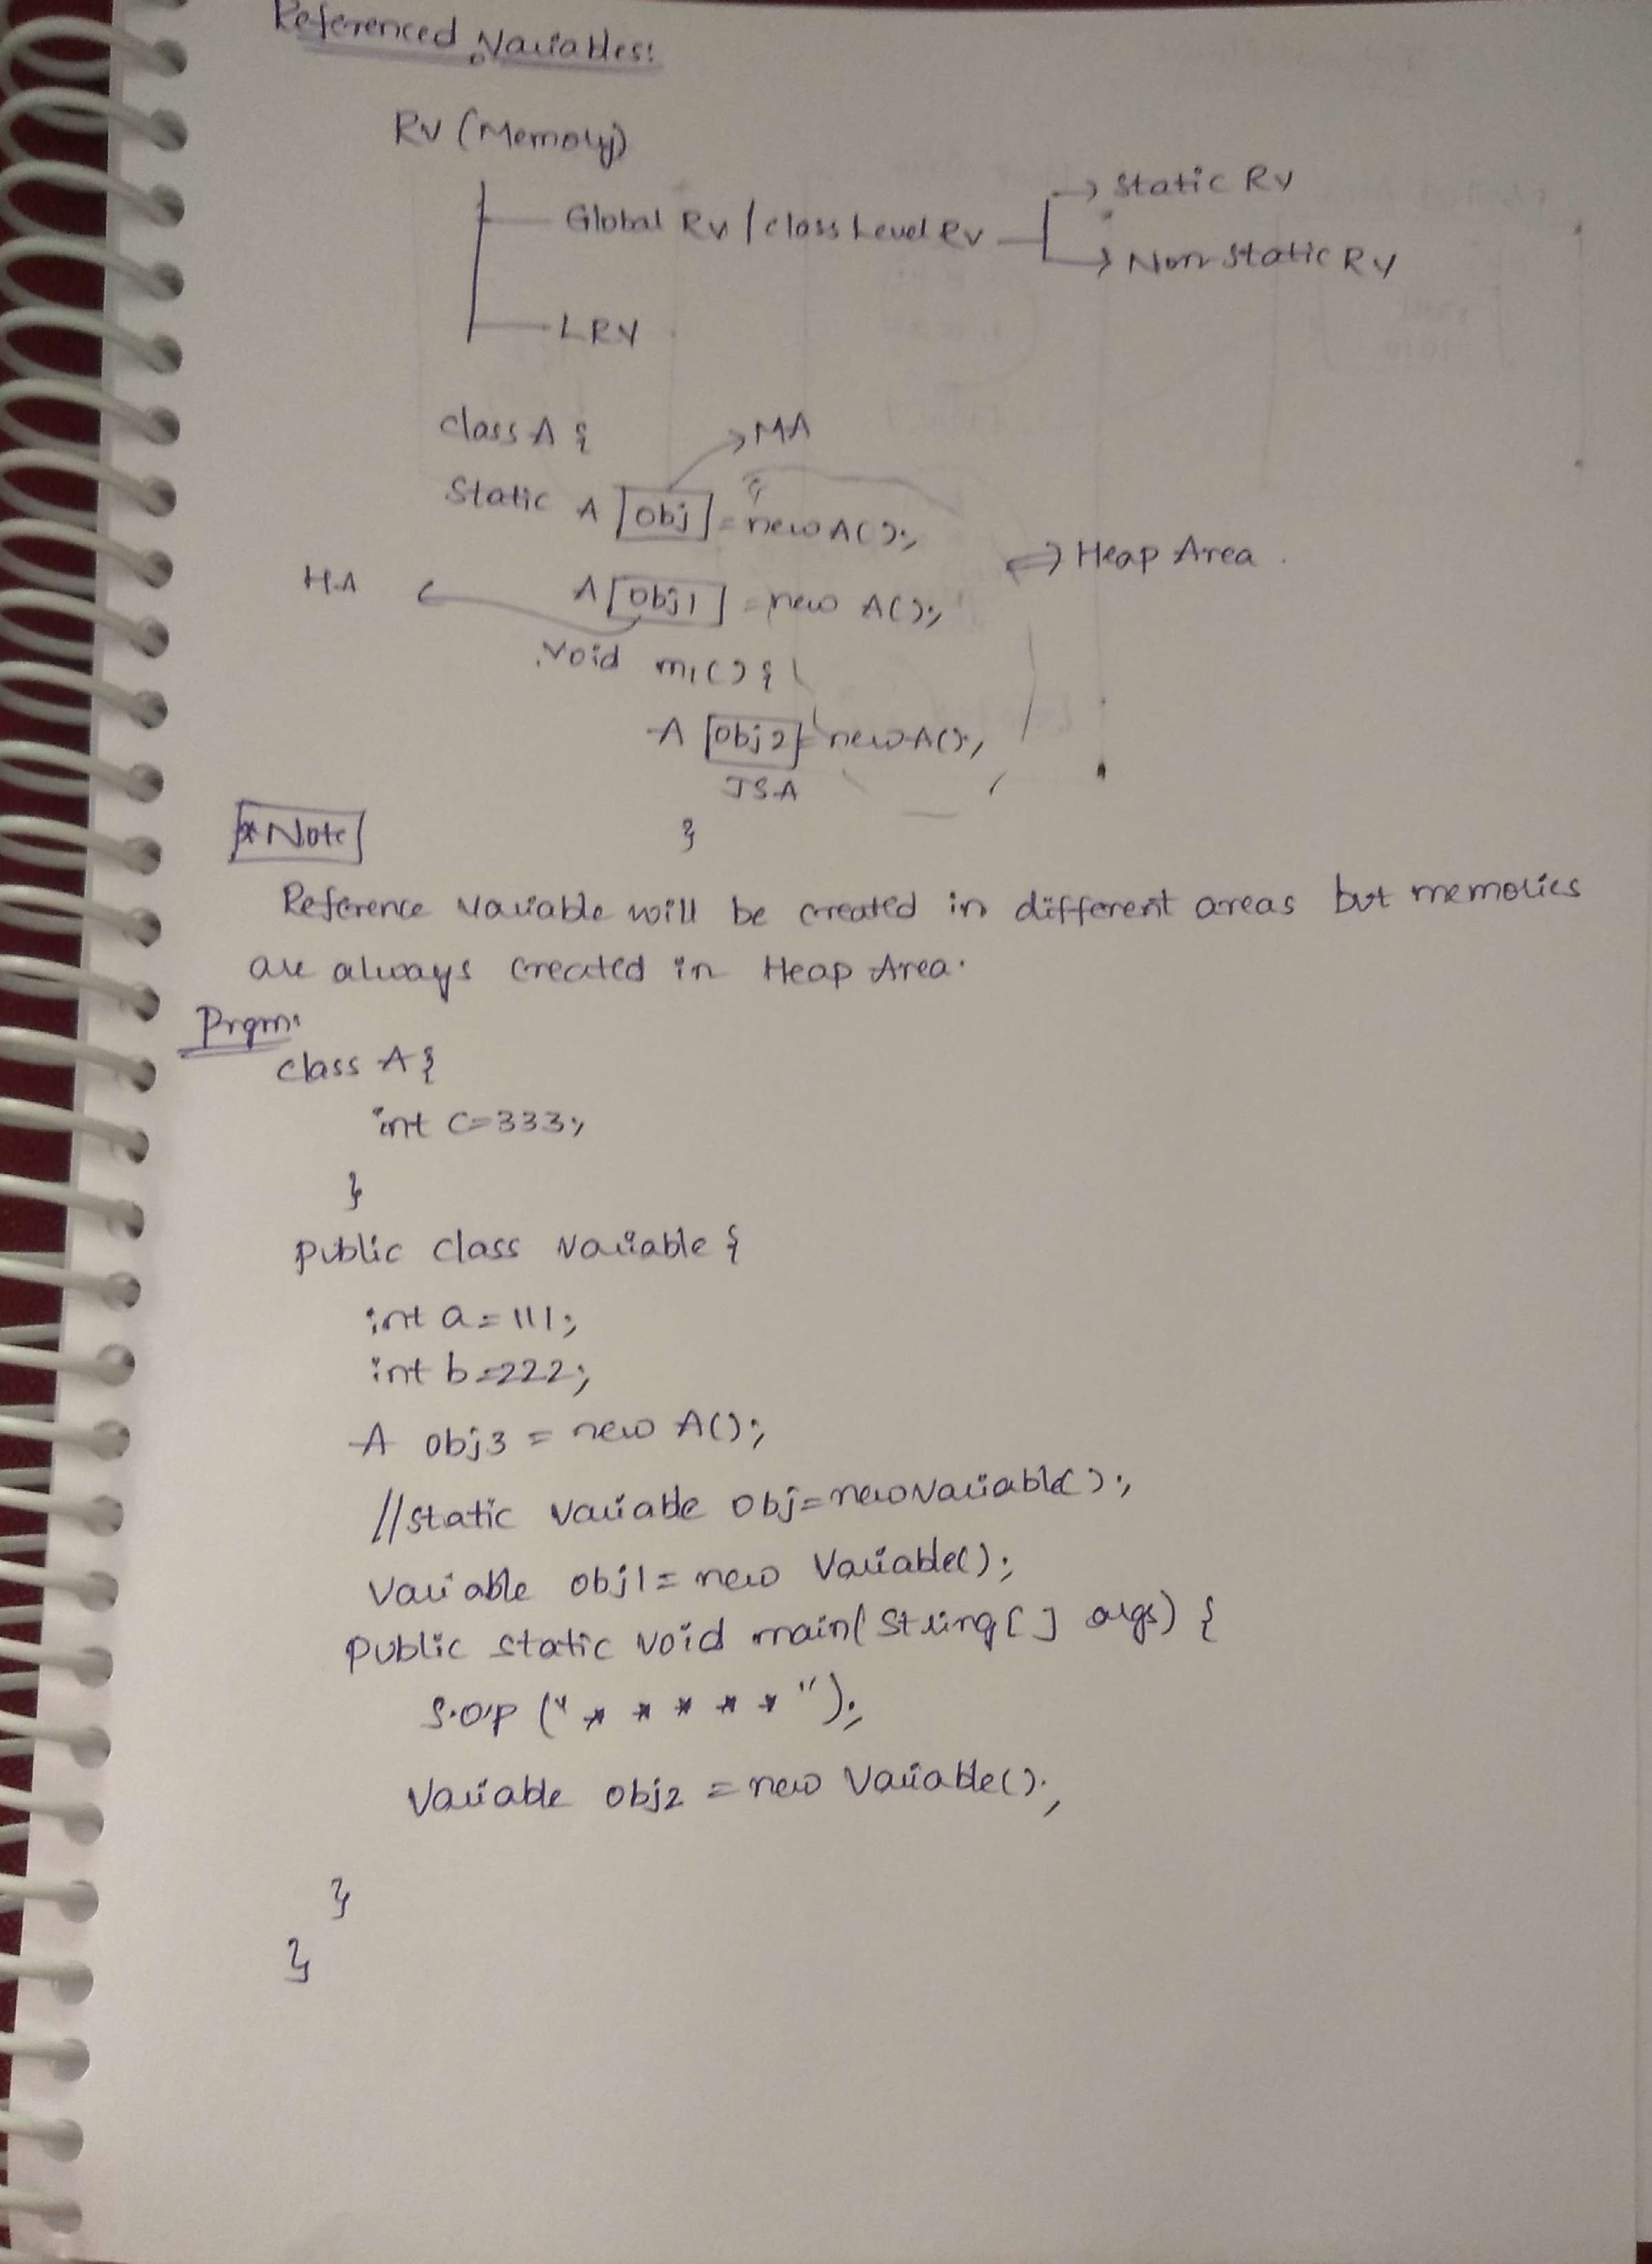 Referenced Variables:
RV (Memory)
Global RV / class Level RV → static RV
→ Non-static RV
LRV
class A {
→ MA
Static A obj = new A();
⇒ Heap Area.
HA ← A obj1 = new A();
void m1() {
A obj2 = new A();
JSA
}
* Note
Reference variable will be created in different areas but memories
are always created in Heap Area.
Prgm:
class A {
int c=333;
}
public class Variable {
int a = 111;
int b=222;
A obj3 = new A();
//static Variable obj=new Variable();
Variable obj1 = new Variable();
public static void main(String[] args) {
S.O.P ("* * * * *");
Variable obj2 = new Variable();
}
}